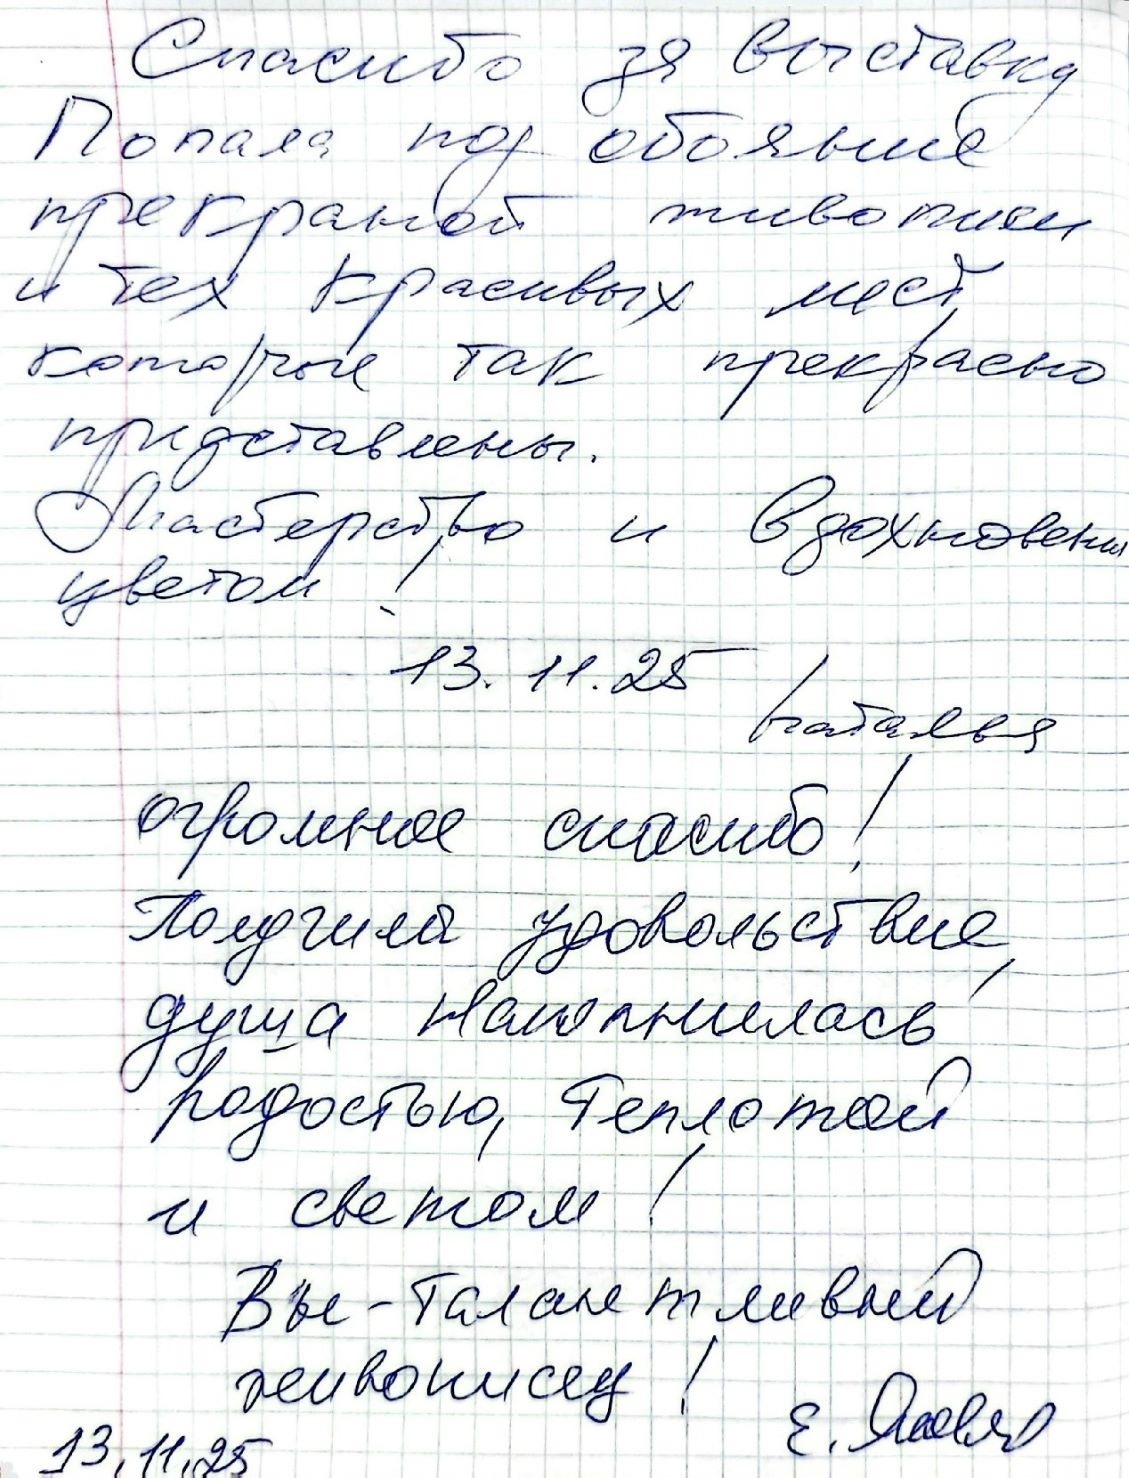 Спасибо за выставку
Попала под обояние
прекраной живописи
и тех красивых мест
которые так прекрасно
придставлены.
Мастерство и вдохновения
цветом!
13.11.25
Наталья
огромное спасибо!
Получила удовольствие,
душа наполнилась
радостью, теплотой
и светом!
Вы - талантливый
живописец!
Е.
13.11.25